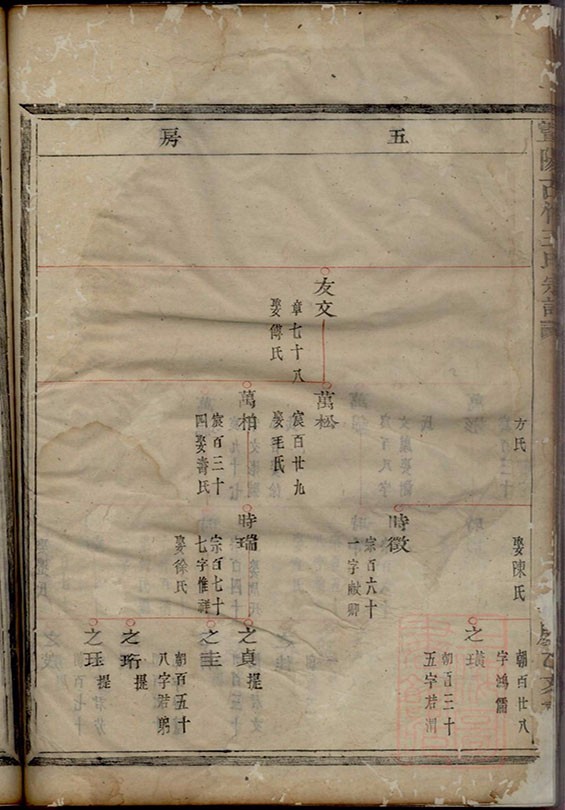 五房
方氏
娶陳氏
朝百廿八
字鴻儒
之璜
朝百三十
五字若渭
時徵
宗百六十
一字献卿
友文
章七十八
娶傅氏
萬松
宸百廿九
娶毛氏
萬柏
宸百三十
四娶壽氏
時瑞
宗百七十
七字惟祥
娶徐氏
之貞
提
之圭
朝百五十
八字若躬
之珩
提
之珏
提